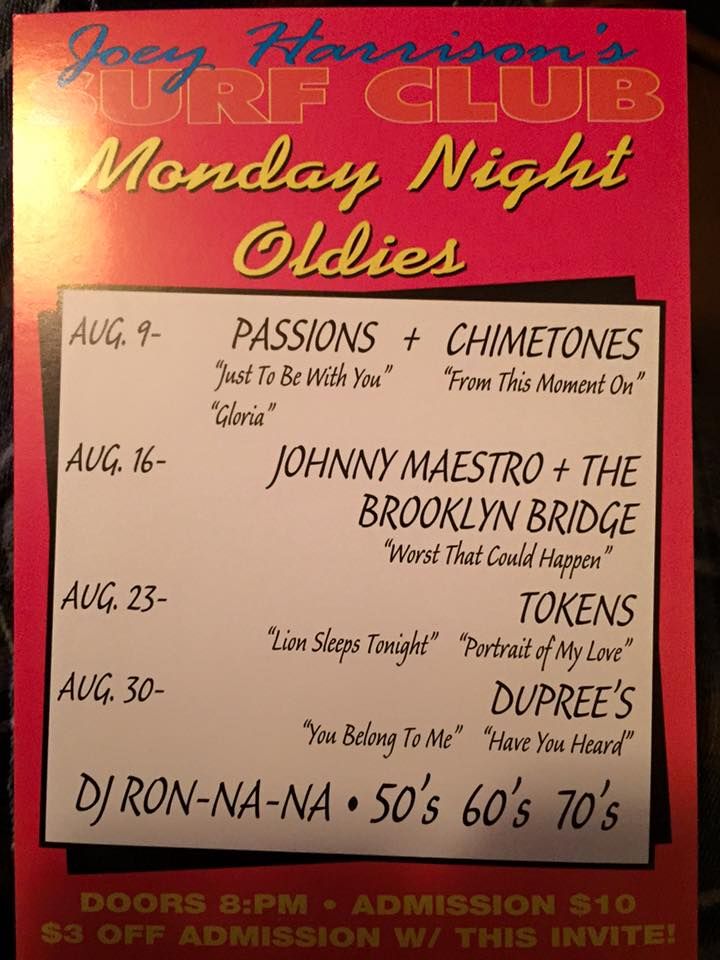 Joey Harrison's
SURF CLUB
Monday Night
Oldies
AUG. 9- PASSIONS + CHIMETONES
"Just To Be With You" "From This Moment On"
"Gloria"
AUG. 16- JOHNNY MAESTRO + THE
BROOKLYN BRIDGE
"Worst That Could Happen"
AUG. 23- TOKENS
"Lion Sleeps Tonight" "Portrait of My Love"
AUG. 30- DUPREE'S
"You Belong To Me" "Have You Heard"
DJ RON-NA-NA • 50's 60's 70's
DOORS 8:PM • ADMISSION $10
$3 OFF ADMISSION W/ THIS INVITE!